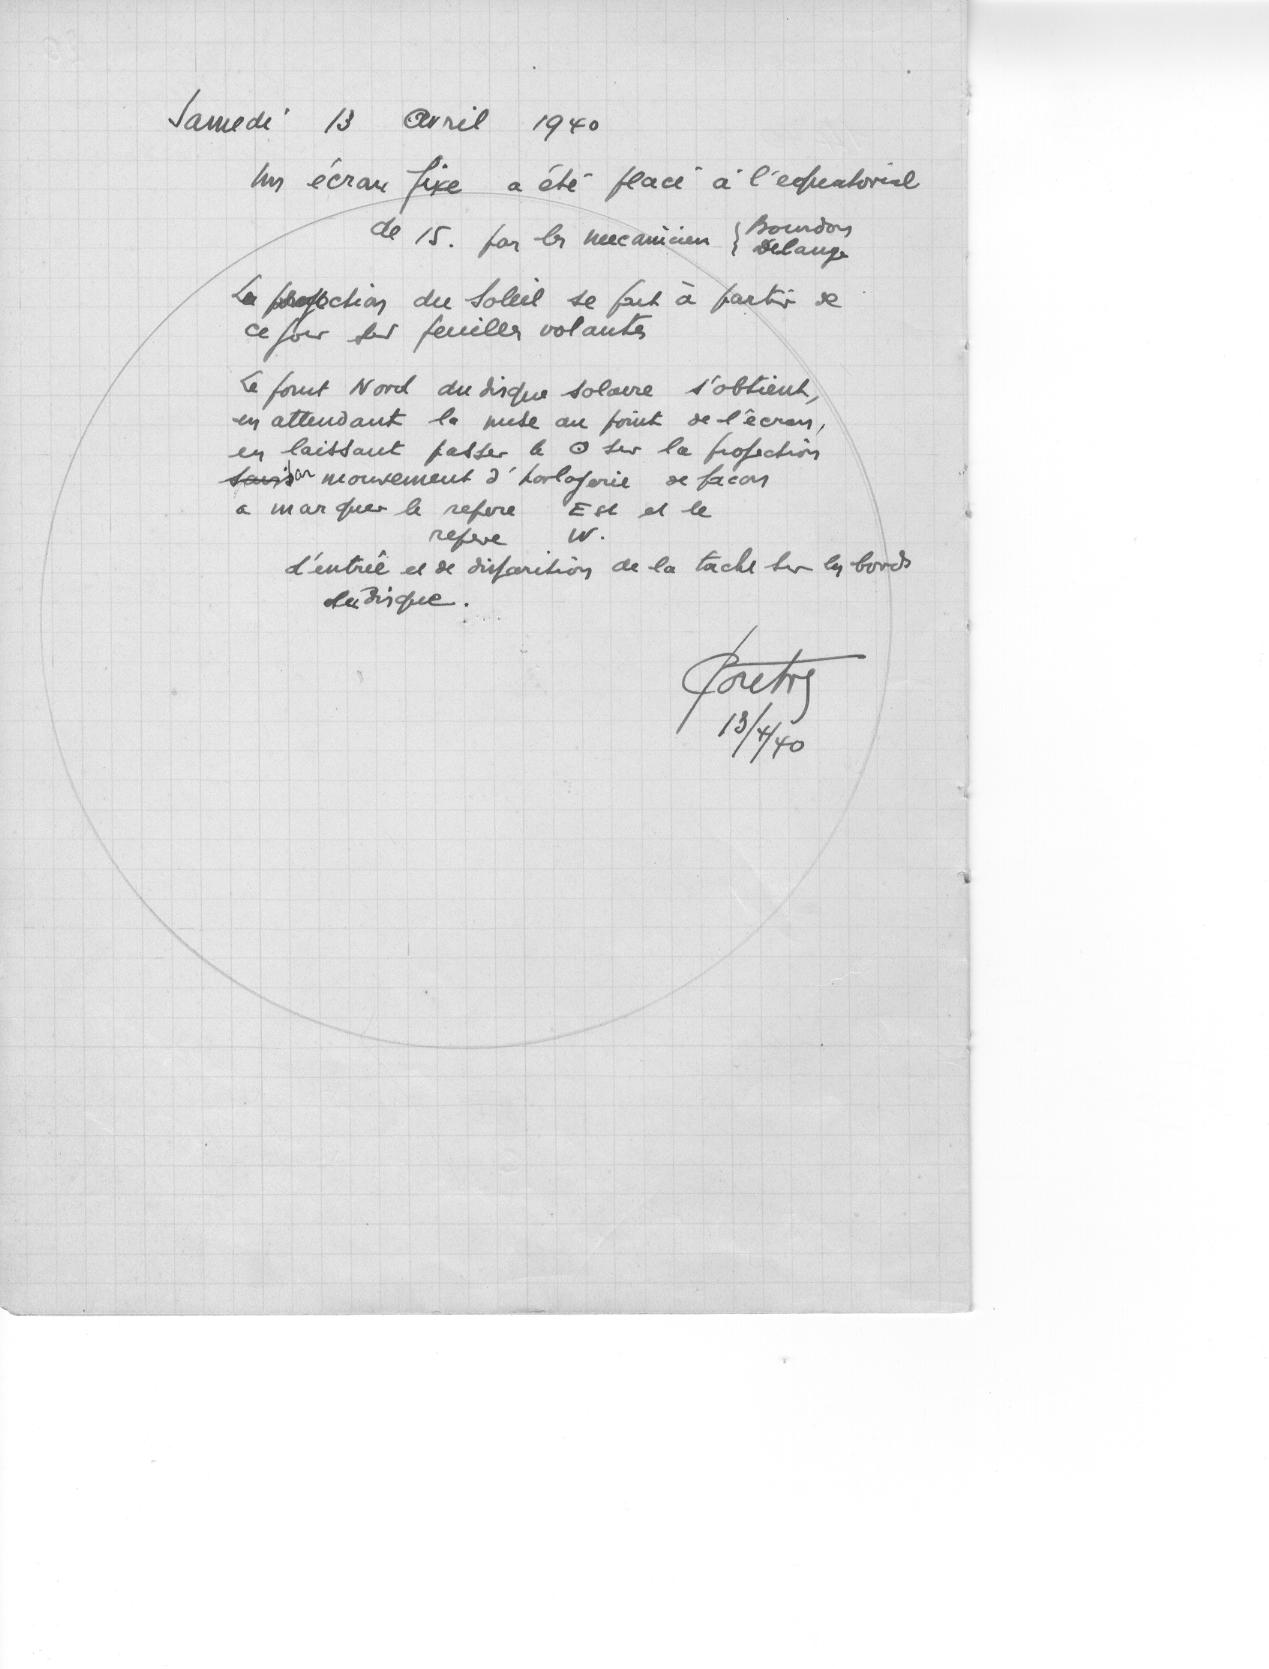 Samedi 13 Avril 1940
Un écran fixe a été placé à l'equatorial
de 15. par les mecanicien { Bourdon
Delange
La projection du Soleil se fait à partir de
ce jour sur feuilles volantes
Le point Nord du disque solaire s'obtient,
en attendant la mise au point de l'écran,
en laissant passer le ⊙ sur la projection
sans mouvement d'horlogerie de facon
a marquer le repere Est et le
repere W.
d'entrée et de disparition de la tache sur les bords
du Disque.
13/4/40